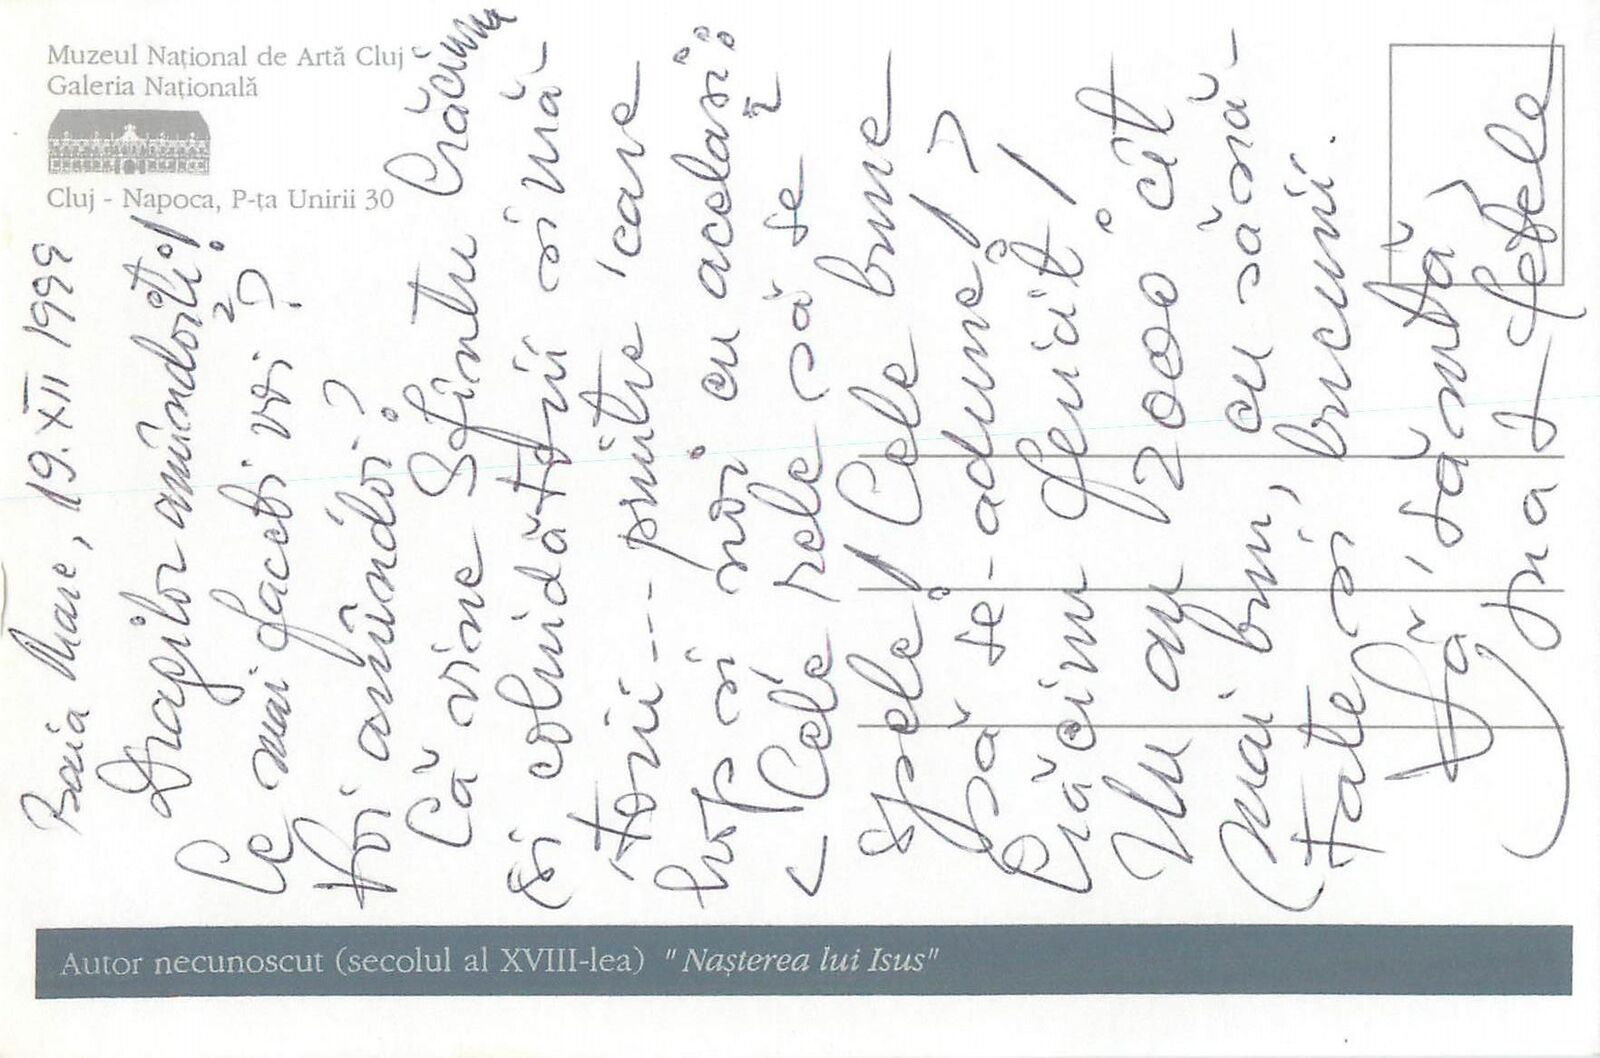 Muzeul Național de Artă Cluj
Galeria Națională
Cluj - Napoca, P-ța Unirii 30
Baia Mare, 19.XII 1999
Dragilor amîndoi!
Ce mai faceți voi?
Voi amîndoi?
Că vine Sfîntu Crăciun
și colindătorii si nă-
torii--- printre care
și noi cu același
Cele rele să se
spele! Cele bune
să se-adune!
Crăciun fericit!
Un an 2000 cît
mai bun, cu sănă-
tate și bucurii.
Vă sărută
fetele
Autor necunoscut (secolul al XVIII-lea) "Nașterea lui Isus"